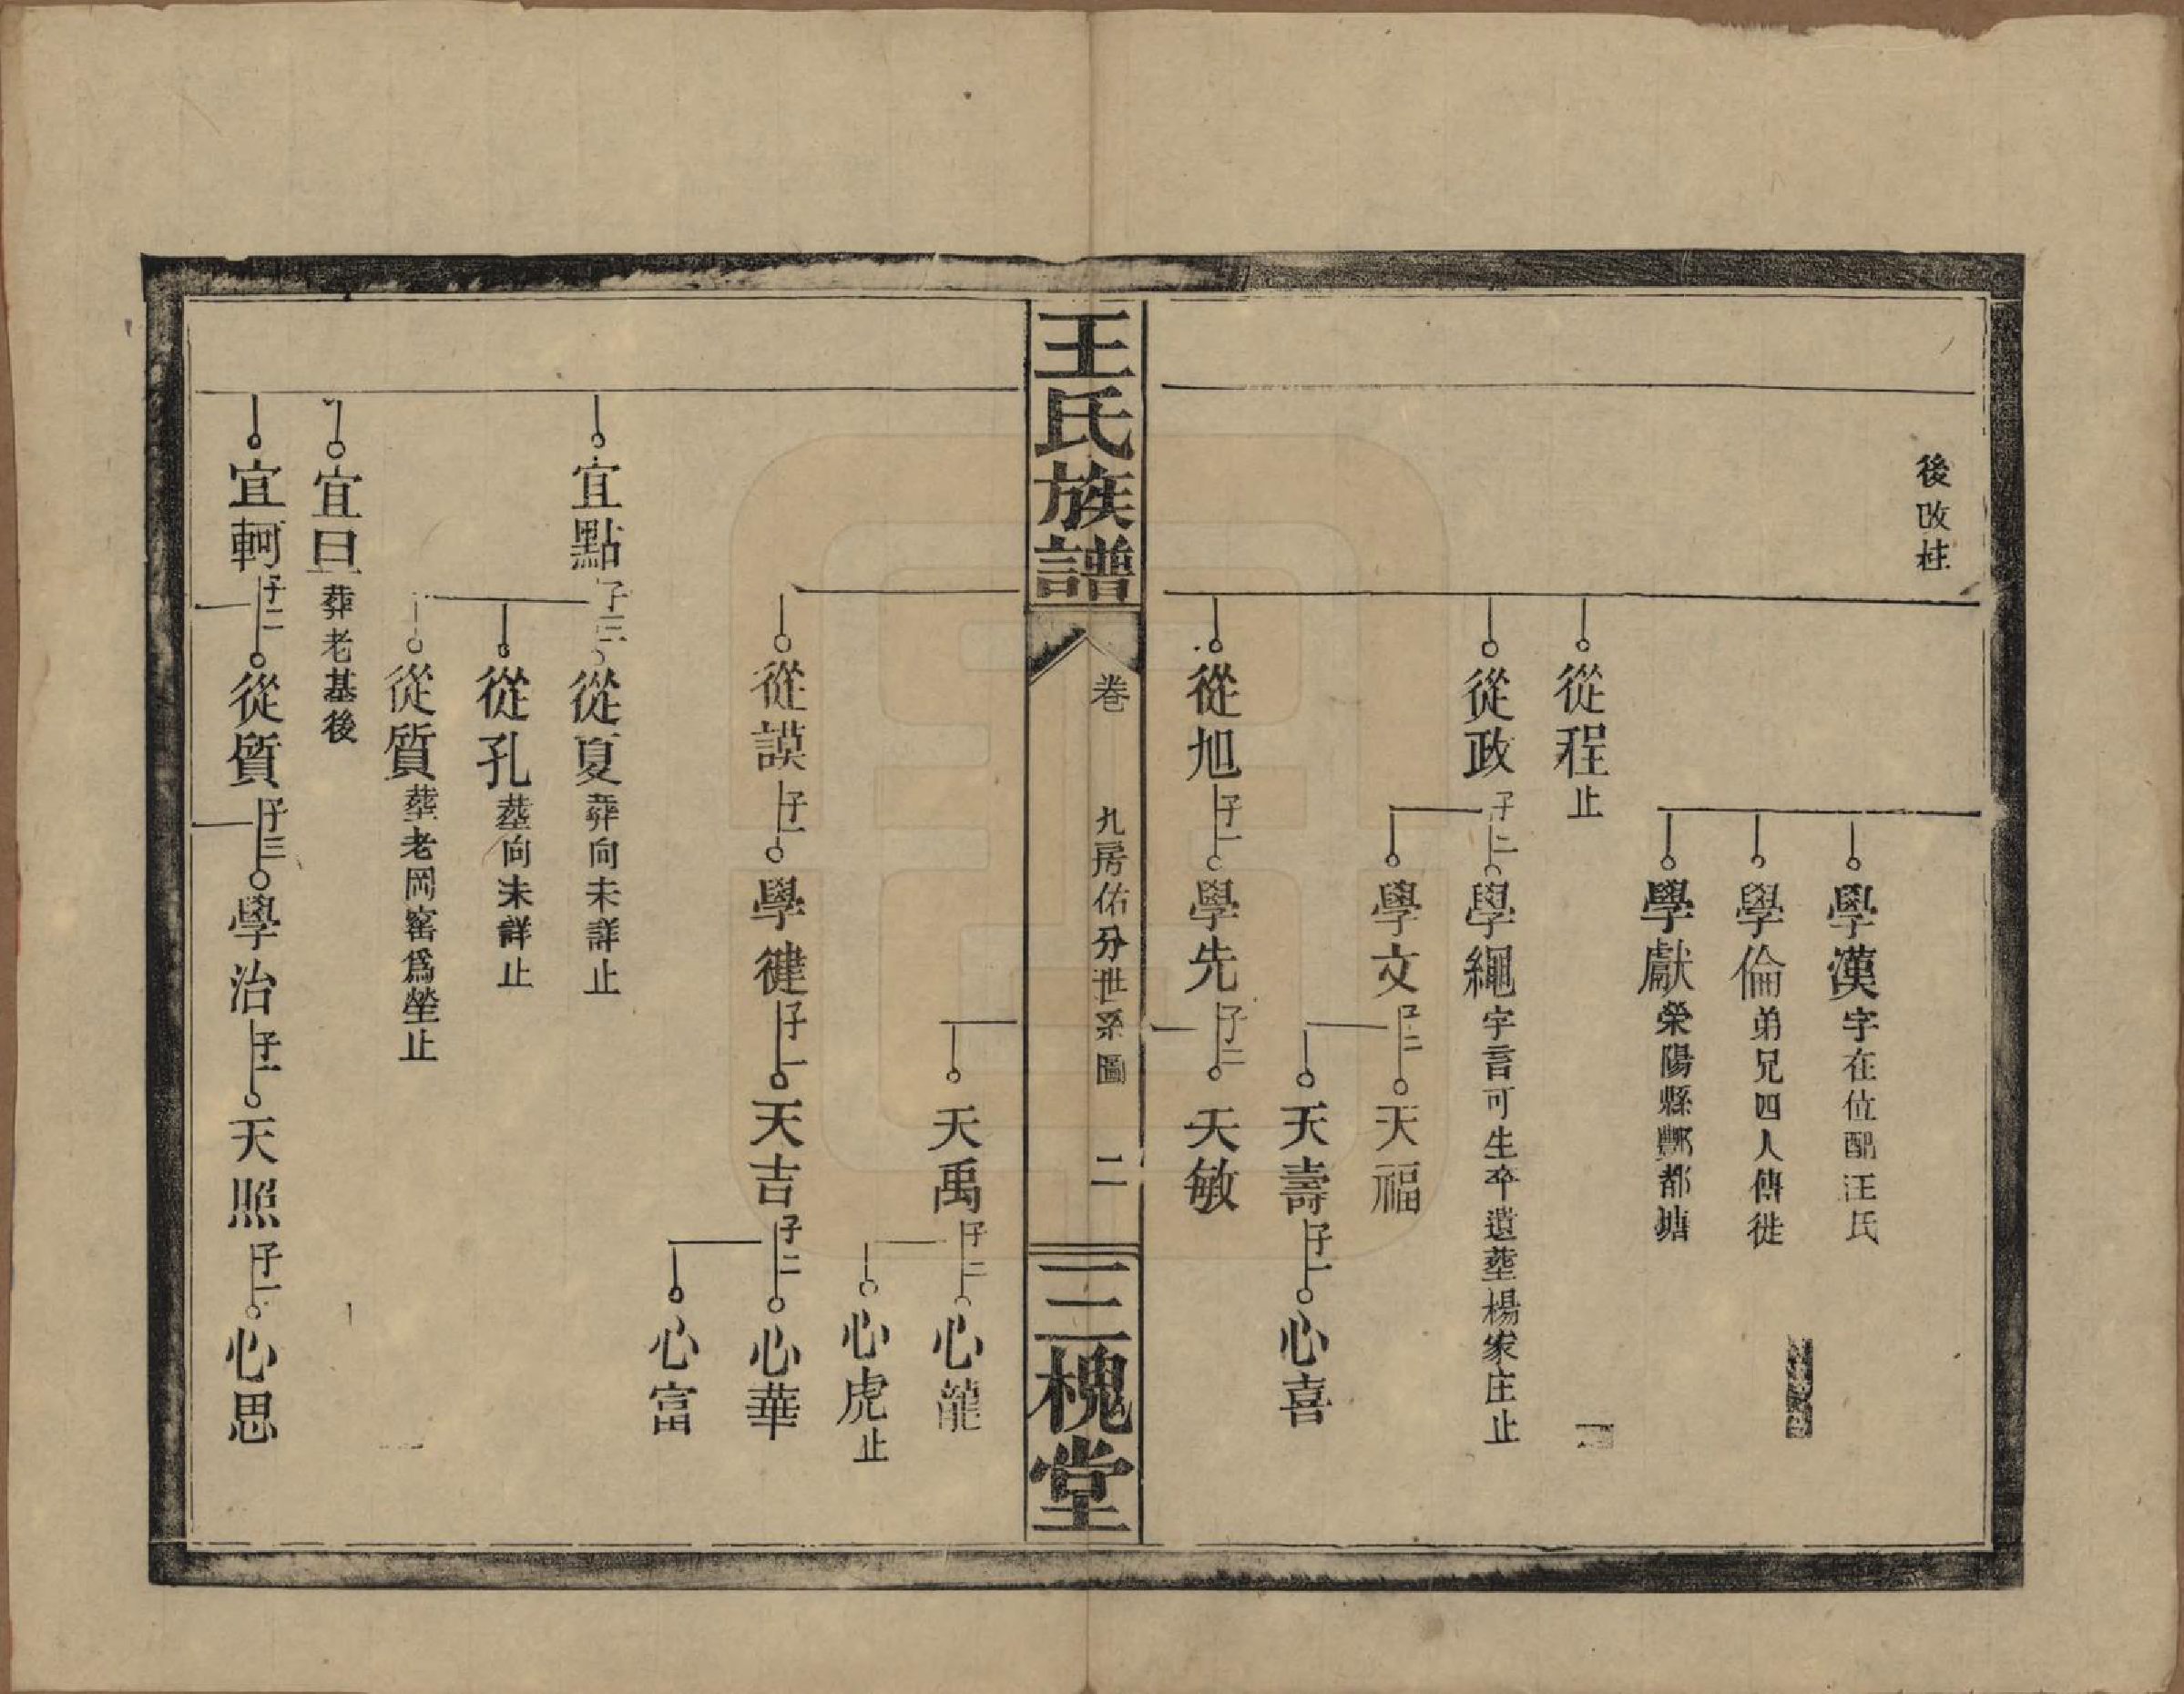 後改姓
學漢字在位配汪氏
學倫弟兄四人傳徙
學獻榮陽縣酆都塘
從程止
從政子二學繩字言可生卒遺塟楊家庄止
學文子二天福
天壽子一心喜
從旭子一學先子二天敏
王氏族譜 卷 九房佑分世系圖 二 三槐堂
天禹子二心龍
心虎止
從謨子一學健子一天吉子二心華
心富
宜點子三從夏葬向未詳止
從孔塟向未詳止
從質塟老岡窰爲塋止
宜曰葬老基後
宜軻子二從質子三學治子一天照子一心思